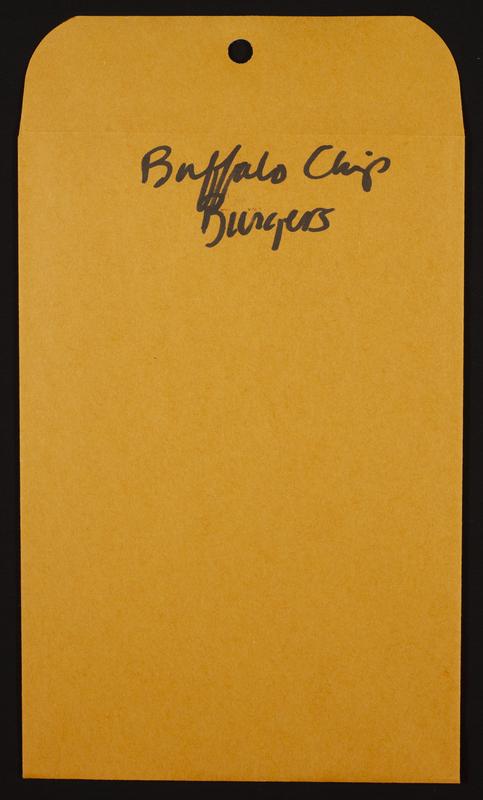 Buffalo Chip
Burgers